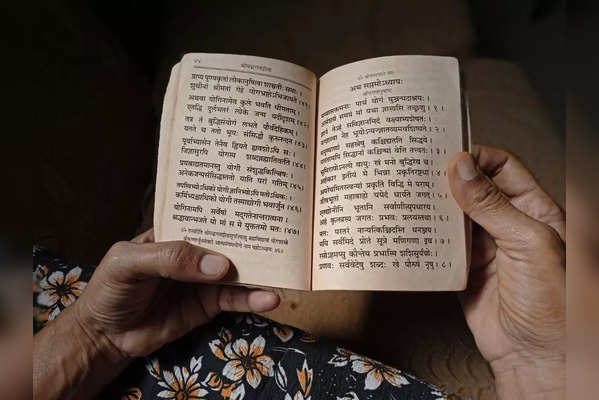 श्रीमद्भगवद्गीता
प्राप्य पुण्यकृतां लोकानुषित्वा शाश्वतीः समाः ।
शुचीनां श्रीमतां गेहे योगभ्रष्टोऽभिजायते ।४१।
अथवा योगिनामेव कुले भवति धीमताम् ।
एतद्धि दुर्लभतरं लोके जन्म यदीदृशम् ।४२।
तत्र तं बुद्धिसंयोगं लभते पौर्वदेहिकम् ।
यतते च ततो भूयः संसिद्धौ कुरुनन्दन ।४३।
पूर्वाभ्यासेन तेनैव ह्रियते ह्यवशोऽपि सः ।
जिज्ञासुरपि योगस्य शब्दब्रह्मातिवर्तते ।४४।
प्रयत्नाद्यतमानस्तु योगी संशुद्धकिल्बिषः ।
अनेकजन्मसंसिद्धस्ततो याति परां गतिम् ।४५।
तपस्विभ्योऽधिको योगी ज्ञानिभ्योऽपि मतोऽधिकः ।
कर्मिभ्यश्चाधिको योगी तस्माद्योगी भवार्जुन ।४६।
योगिनामपि सर्वेषां मद्गतेनान्तरात्मना ।
श्रद्धावान्भजते यो मां स मे युक्ततमो मतः ।४७।
अथ सप्तमोऽध्यायः
श्रीभगवानुवाच
पार्थ योगं युञ्जन्मदाश्रयः ।
असंशयं समग्रं मां यथा ज्ञास्यसि तच्छृणु ।१।
तेऽहं सविज्ञानमिदं वक्ष्याम्यशेषतः ।
नेह भूयोऽन्यज्ज्ञातव्यमवशिष्यते ।२।
सहस्रेषु कश्चिद्यतति सिद्धये ।
सिद्धानां कश्चिन्मां वेत्ति तत्त्वतः ।३।
वायुः खं मनो बुद्धिरेव च ।
इतीयं मे भिन्ना प्रकृतिरष्टधा ।४।
प्रकृतिं विद्धि मे पराम् ।
महाबाहो ययेदं धार्यते जगत् ।५।
भूतानि सर्वाणीत्युपधारय ।
कृत्स्नस्य जगतः प्रभवः प्रलयस्तथा ।६।
परतरं नान्यत्किंचिदस्ति धनञ्जय ।
मयि सर्वमिदं प्रोतं सूत्रे मणिगणा इव ।७।
कौन्तेय प्रभास्मि शशिसूर्ययोः ।
प्रणवः सर्ववेदेषु शब्दः खे पौरुषं नृषु ।८।